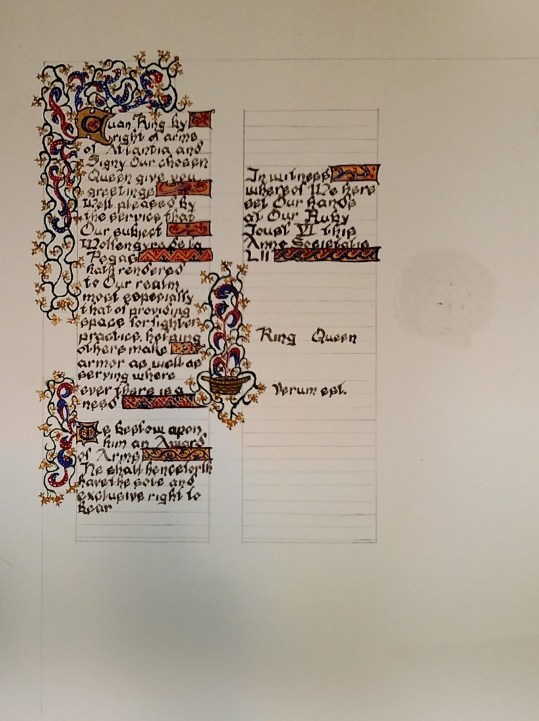 Cuan King by
right of arms
of Atlantia and
Signy Our chosen
Queen give you
greetings
Well pleased by
the service that
Our subject
de la
Pegas
hath rendered
to Our realm
most especially
that of providing
space for fighter
practice, helping
others make
armor as well as
serving where
ever there is a
need
We bestow upon
him an Award
of Arms
He shall henceforth
have the sole and
exclusive right to
bear
In witness
whereof We here
set Our hands
at Our Ruby
Joust VI this
Anno Societatis
LII
King Queen
Verum est.